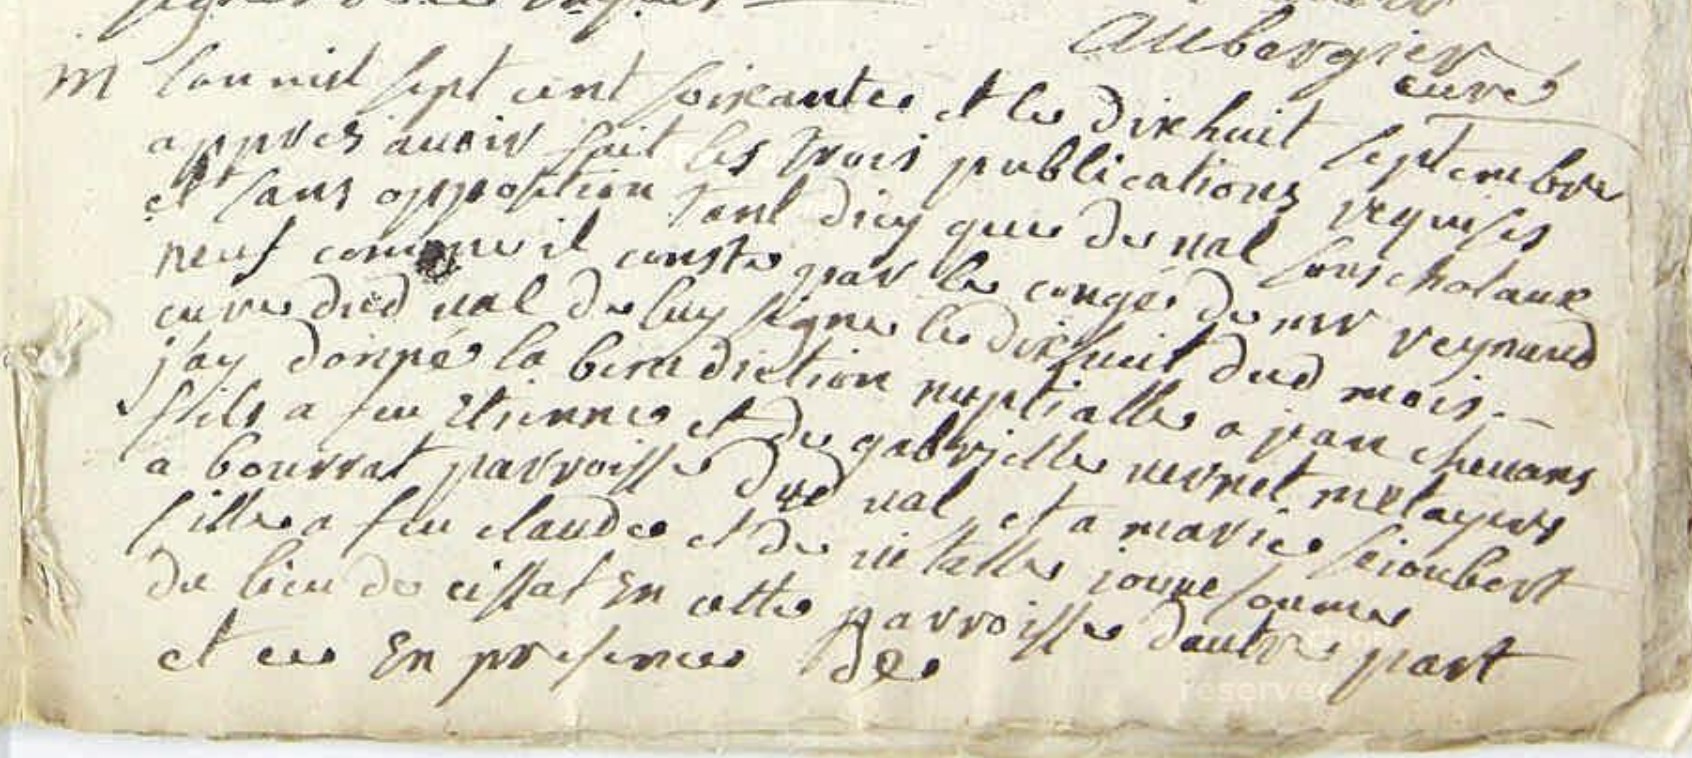 Aubergier
curé
M
lan mil sept cent soixante et le dixhuit septembre
appres auoir fait les trois publications requises
et sans opposition tant dicy que du val sous chateau
neuf comme il conste par le congé de mr reynaud
curé dud val de luy signé le dixhuit dud mois.
j'ay donné la benediction nuptialle a jean
fils a feu Etienne et de gabrielle vernet metayers
a bourrat parroisse dud val, et a marie
fille a feu claude et de vitalle jouve
du lieu de cissat En cette parroisse dautre part
et ce En presence de
reserved